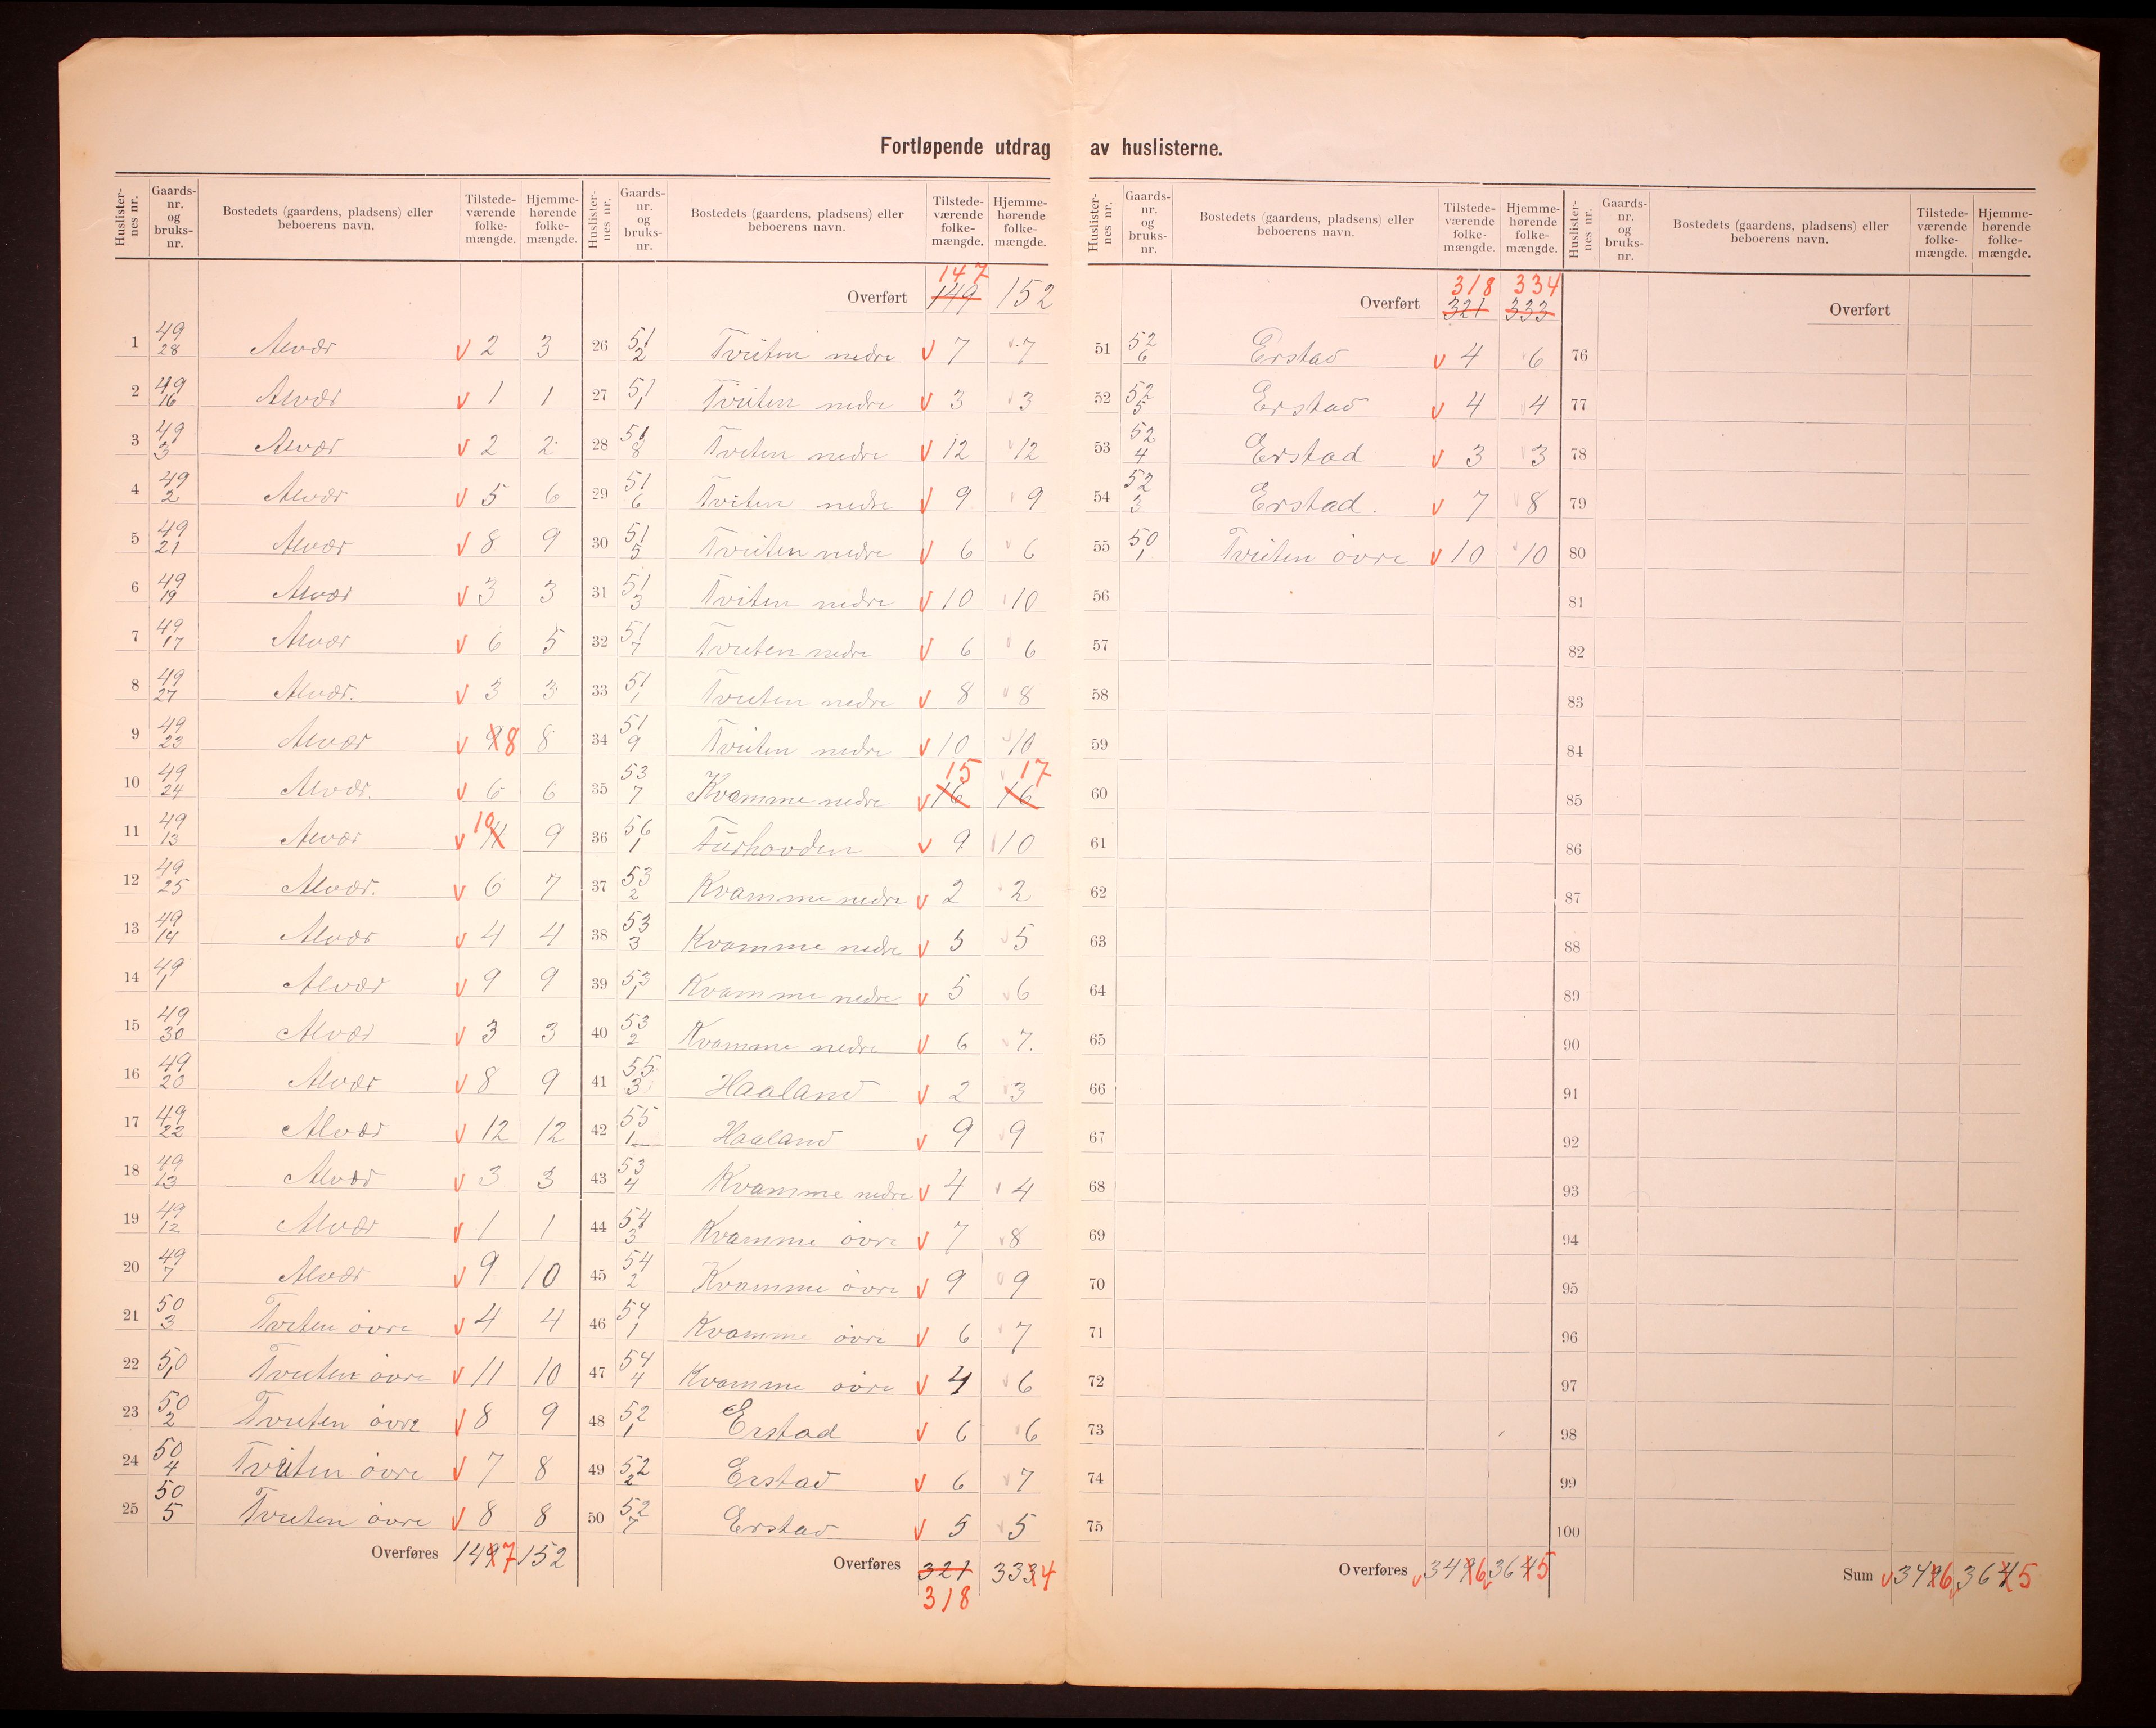 Fortløpende utdrag av huslisterne.
Huslisternes nr. | Gaards-nr. og bruks-nr. | Bostedets (gaardens, pladsens) eller beboerens navn. | Tilstede-værende folke-mængde. | Hjemme-hørende folke-mængde.
1 49/28 Alvær 2 3
2 49/16 Alvær 1 1
3 49/3 Alvær 2 2
4 49/2 Alvær 5 6
5 49/21 Alvær 8 9
6 49/19 Alvær 3 3
7 49/17 Alvær 6 5
8 49/27 Alvær. 3 3
9 49/23 Alvær 9 8 8
10 49/24 Alvær. 6 6
11 49/13 Alvær 11 10 9
12 49/25 Alvær. 6 7
13 49/14 Alvær 4 4
14 49/1 Alvær 9 9
15 49/30 Alvær 3 3
16 49/20 Alvær 8 9
17 49/22 Alvær 12 12
18 49/13 Alvær 3 3
19 49/12 Alvær 1 1
20 49/7 Alvær 9 10
21 50/3 Tveiten øvre 4 4
22 50/1 Tveiten øvre 11 10
23 50/2 Tveiten øvre 8 9
24 50/4 Tveiten øvre 7 8
25 50/5 Tveiten øvre 8 8
Overføres 149 7 152
Huslisternes nr. | Gaards-nr. og bruks-nr. | Bostedets (gaardens, pladsens) eller beboerens navn. | Tilstede-værende folke-mængde. | Hjemme-hørende folke-mængde.
Overført 149 147 152
26 51/2 Tveiten nedre 7 7
27 51/1 Tveiten nedre 3 3
28 51/8 Tveiten nedre 12 12
29 51/6 Tveiten nedre 9 9
30 51/5 Tveiten nedre 6 6
31 51/3 Tveiten nedre 10 10
32 51/7 Tveiten nedre 6 6
33 51/1 Tveiten nedre 8 8
34 51/9 Tveiten nedre 10 10
35 53/7 Kvamme nedre 16 15 16 17
36 56/1 Furhovden 9 10
37 53/2 Kvamme nedre 2 2
38 53/3 Kvamme nedre 5 5
39 53/1 Kvamme nedre 5 6
40 53/2 Kvamme nedre 6 7.
41 55/3 Haaland 2 3
42 55/1 Haaland 9 9
43 53/4 Kvamme nedre 4 4
44 54/3 Kvamme øvre 7 8
45 54/2 Kvamme øvre 9 9
46 54/1 Kvamme øvre 6 7
47 54/4 Kvamme øvre 4 6
48 52/1 Erstad 6 6
49 52/2 Erstad 6 7
50 52/7 Erstad 5 5
Overføres 321 318 333 4
Huslisternes nr. | Gaards-nr. og bruks-nr. | Bostedets (gaardens, pladsens) eller beboerens navn. | Tilstede-værende folke-mængde. | Hjemme-hørende folke-mængde.
Overført 321 318 333 334
51 52/6 Erstad 4 6
52 52/5 Erstad 4 4
53 52/4 Erstad 3 3
54 52/3 Erstad. 7 8
55 50/1 Tveiten øvre 10 10
56
57
58
59
60
61
62
63
64
65
66
67
68
69
70
71
72
73
74
75
Overføres 349 6 364 5
Huslisternes nr. | Gaards-nr. og bruks-nr. | Bostedets (gaardens, pladsens) eller beboerens navn. | Tilstede-værende folke-mængde. | Hjemme-hørende folke-mængde.
Overført
76
77
78
79
80
81
82
83
84
85
86
87
88
89
90
91
92
93
94
95
96
97
98
99
100
Sum 349 6 364 5